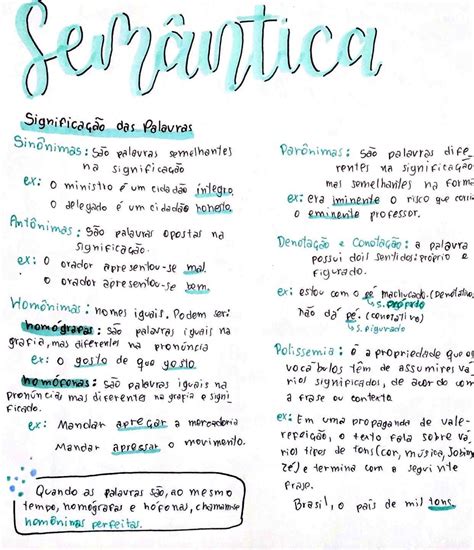 Semântica
Significação das Palavras
Sinônimas: são palavras semelhantes
na significação
ex: o ministro é um cidadão íntegro.
o delegado é um cidadão honesto.
Antônimas: são palavras opostas na
significação.
ex: o orador apresentou-se mal.
o orador apresentou-se bem.
Homônimas: nomes iguais. Podem ser:
homógrafas: são palavras iguais na
grafia, mas diferentes na pronúncia
ex: o gosto de que gosto
homófonas: são palavras iguais na
pronúncia, mas diferentes na grafia e signi
ficado.
ex: Mandar apreçar a mercadoria
Mandar apressar o movimento.
Quando as palavras são, ao mesmo
tempo, homógrafas e hófonas, chamam-se
homônimas perfeitas.
Parônimas: são palavras dife
rentes na significação
mas semelhantes na forma
ex: era iminente o risco que corria
o eminente professor.
Denotação e Conotação: a palavra
possui dois sentidos: próprio e
figurado.
ex: estou com o pé machucado. (Denotativo)
s. próprio
não dá pé. (conotativo)
s. figurado
Polissemia: é a propriedade que os
vocábulos têm de assumires vá
rios significados, de acordo com
a frase ou contexto.
ex: Em uma propaganda de vale-
refeição, o texto fala sobre vá
rios tipos de tons (cor, música, Jobim
Zé) e termina com a seguinte
frase.
Brasil, o país de mil tons.